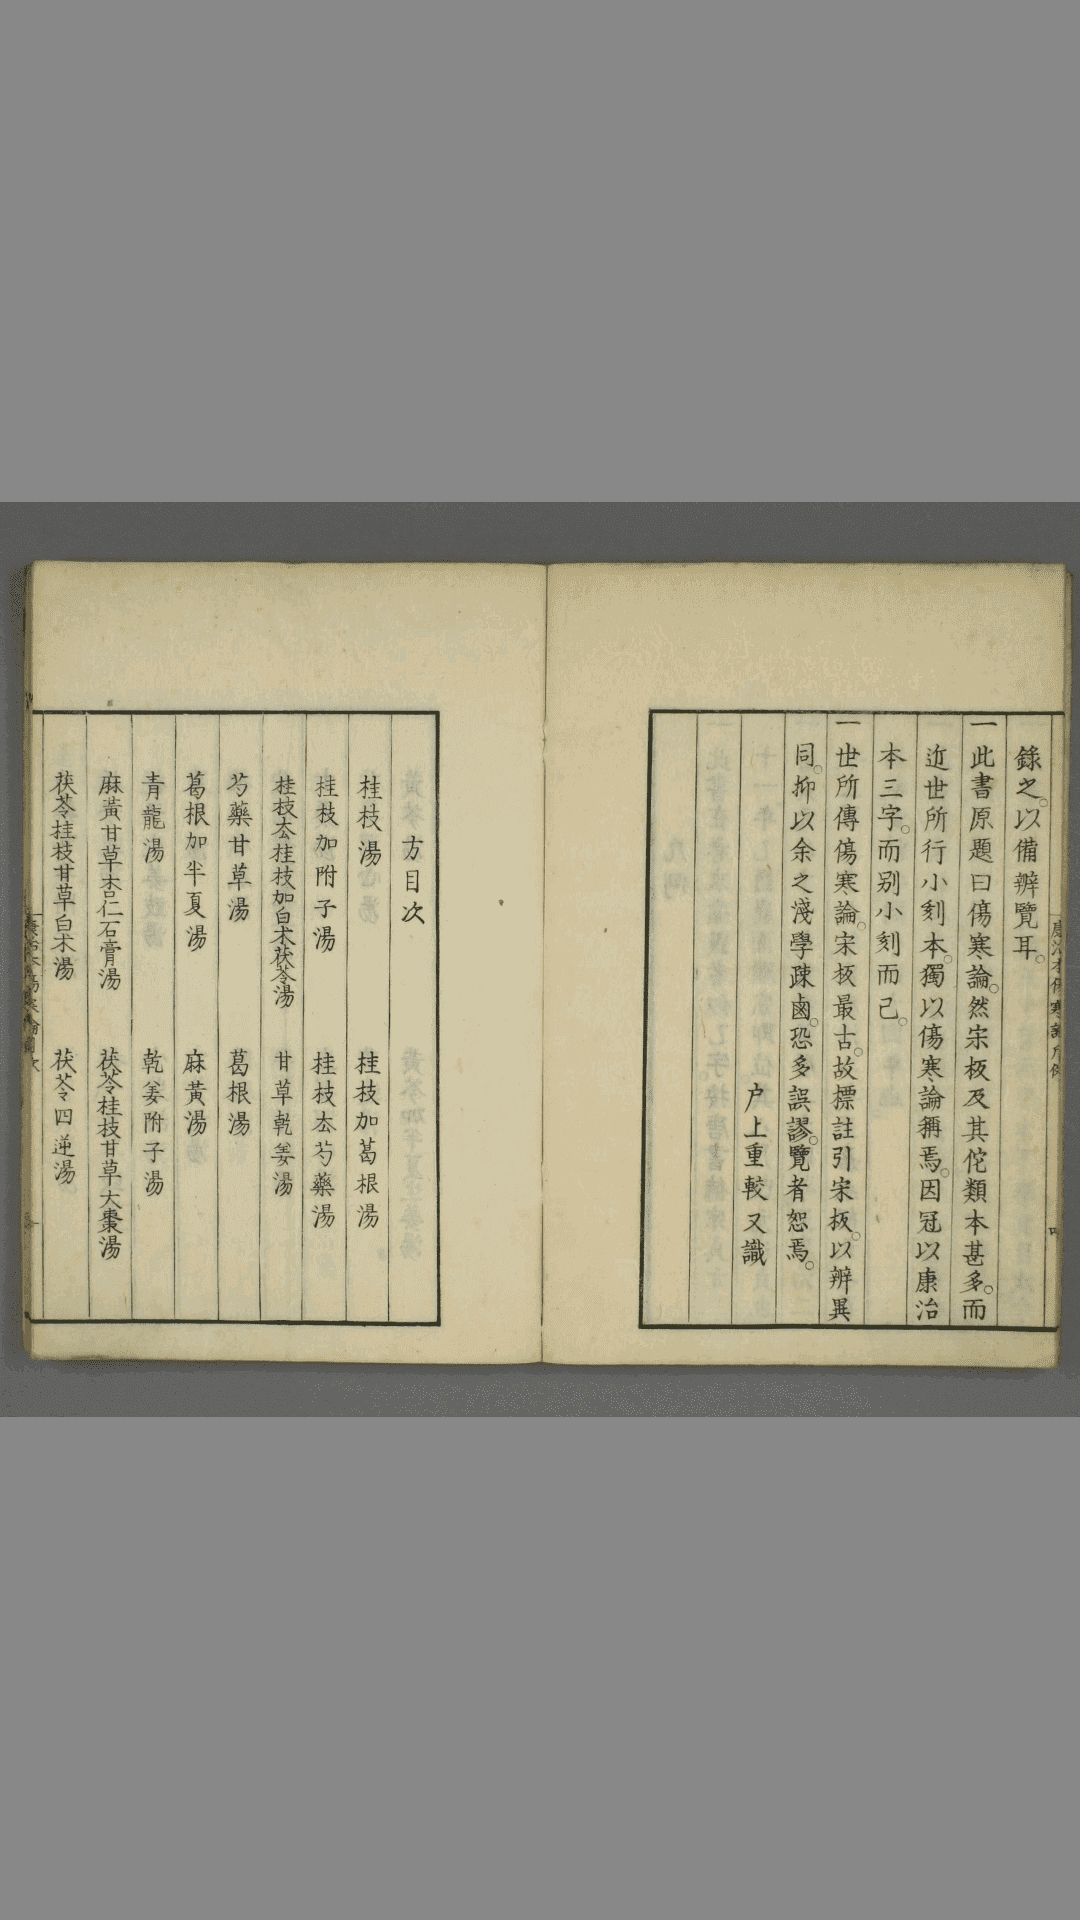 錄之。以備辨覽耳。
一此書原題曰傷寒論。然宋板及其佗類本甚多。而
近世所行小刻本。獨以傷寒論稱焉。因冠以康治
本三字。而別小刻而已。
一世所傳傷寒論。宋板最古。故標註引宋板。以辨異
同。抑以余之淺學疎鹵。恐多誤謬。覽者恕焉。
户上重較又識
方目次
桂枝湯 桂枝加葛根湯
桂枝加附子湯 桂枝厺芍藥湯
桂枝厺桂枝加白朮茯苓湯 甘草乾姜湯
芍藥甘草湯 葛根湯
葛根加半夏湯 麻黃湯
青龍湯 乾姜附子湯
麻黃甘草杏仁石膏湯 茯苓桂枝甘草大棗湯
茯苓桂枝甘草白朮湯 茯苓四逆湯